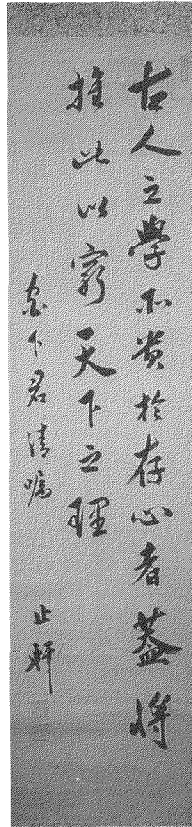 古人之學所貴於存心者蓋將
推此以窮天下之理
下君清嘱 止軒